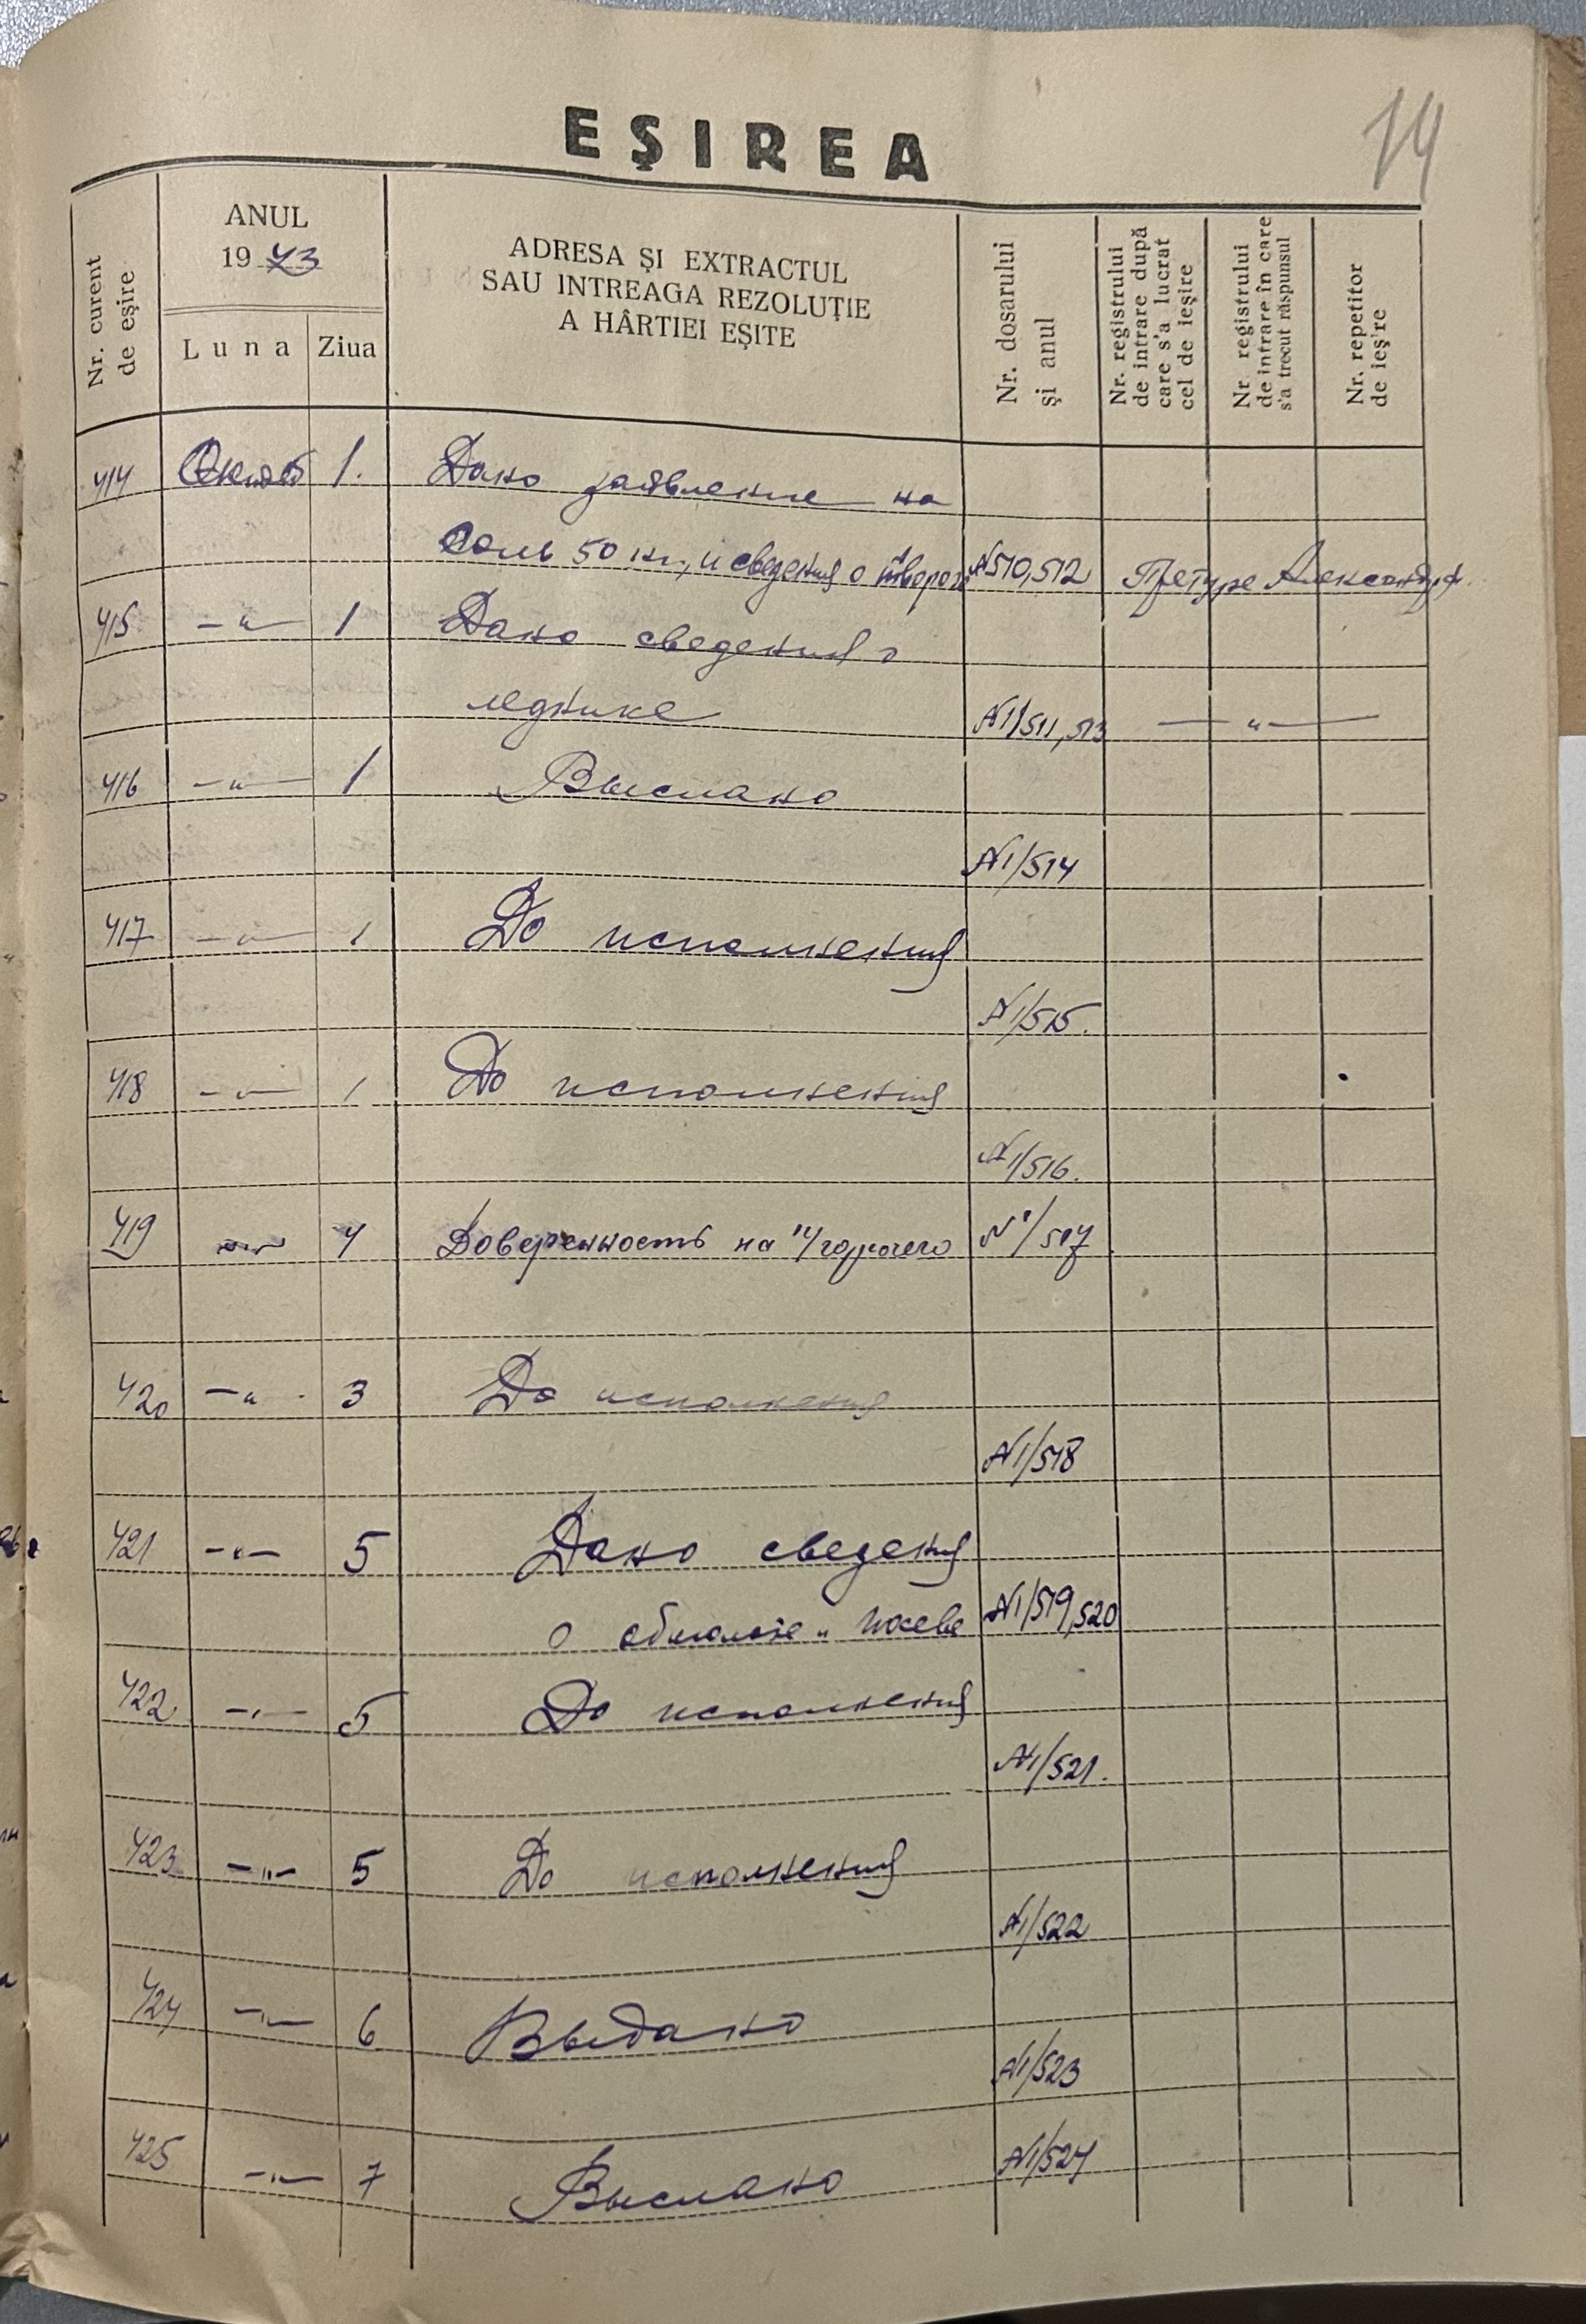 14
EȘIREA
Nr. curent de eșire
ANUL
1943
Luna
Ziua
ADRESA ȘI EXTRACTUL
SAU INTREAGA REZOLUȚIE
A HÂRTIEI EȘITE
Nr. dosarului și anul
Nr. registrului de intrare după care s'a lucrat cel de ieșire
Nr. registrului de intrare în care s'a trecut răspunsul
Nr. repetitor de ieș're
414 Октяб 1. Дано заявление на
Соль 50 кг., и сведения о твороге №510,512 Претуре Александр.
415 —"— 1 Дано сведения о
леднике №1/511,513 —"—
416 —"— 1 Выслано
№1/514
417 —"— 1 До исполнения
№1/515.
418 —"— 1 До исполнения
№1/516.
419 —"— 4 Доверенность на горючего №1/517
420 —"— 3 До исполнения
№1/518
421 —"— 5 Дано сведения
о обмолоте и посеве №1/519,520
422 —"— 5 До исполнения
№1/521.
423 —"— 5 До исполнения
№1/522
424 —"— 6 Выдано
№1/523
425 —"— 7 Выслано №1/524